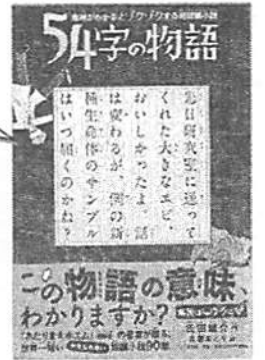 意味がわかるとゾクゾクする超短編小説
54字の物語
先日研究室に送って
くれた大きなエビ、
おいしかったよ。話
は変わるが、例の新
種生命体のサンプル
はいつ届くのかね?
この物語の意味、
わかりますか?
氏田雄介 作